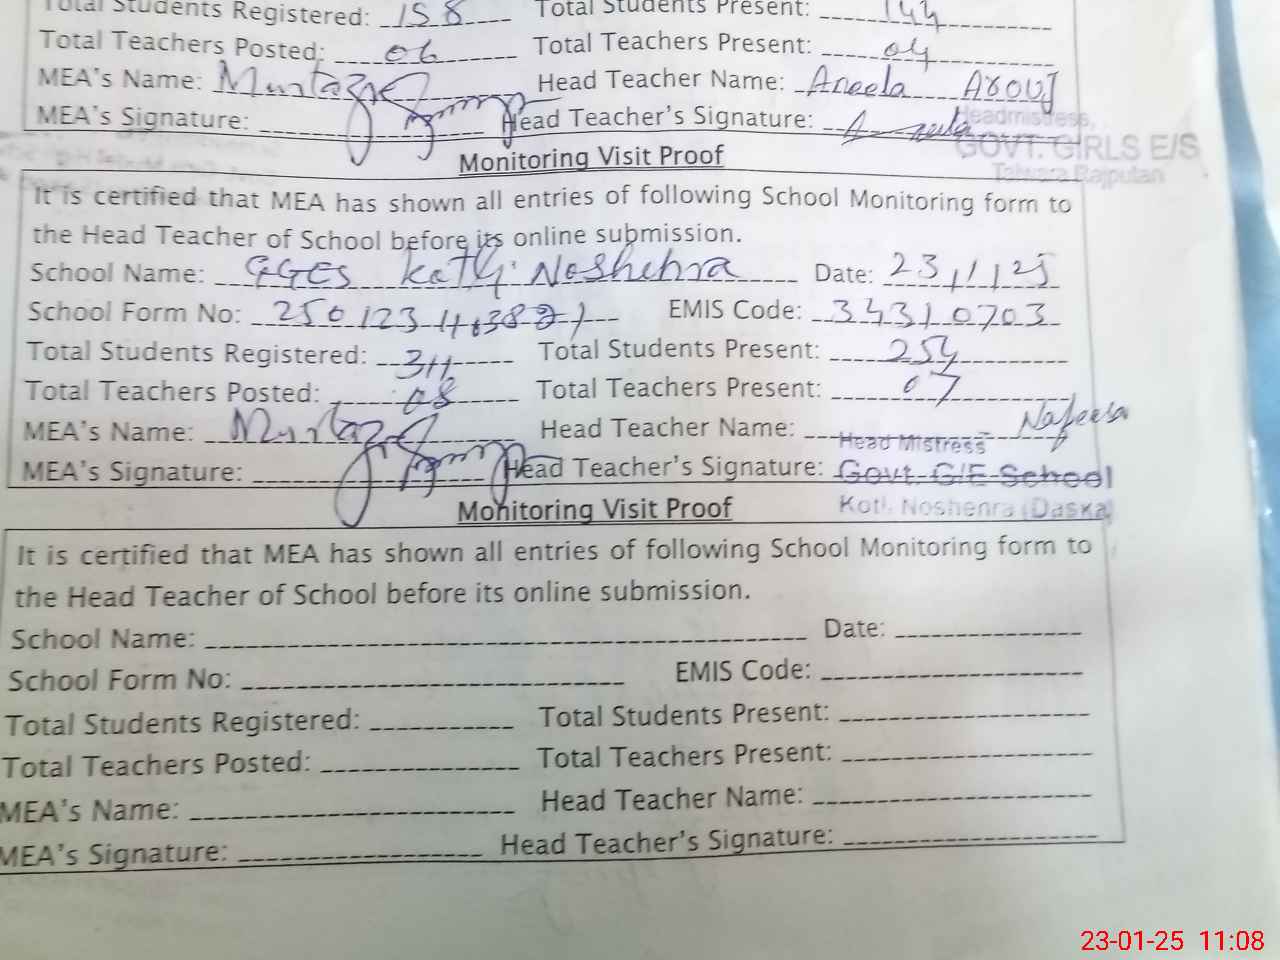 Total Students Registered: 158 Total Students Present: 144
Total Teachers Posted: 06 Total Teachers Present: 04
MEA's Name: Murtaza Head Teacher Name: Aneela Arouj
MEA's Signature: Head Teacher's Signature: Aneela
Headmistress,
GOVT. GIRLS E/S
Talwara Rajputan
Monitoring Visit Proof
It is certified that MEA has shown all entries of following School Monitoring form to
the Head Teacher of School before its online submission.
School Name: GGES Kotli Noshehra Date: 23/1/25
School Form No: EMIS Code: 34310703
Total Students Registered: 311 Total Students Present: 254
Total Teachers Posted: 08 Total Teachers Present: 07
MEA's Name: Murtaza Head Teacher Name: Nafeesa
MEA's Signature: Head Teacher's Signature:
Head Mistress
Govt. G/E School
Kotli Noshehra (Daska)
Monitoring Visit Proof
It is certified that MEA has shown all entries of following School Monitoring form to
the Head Teacher of School before its online submission.
School Name: Date:
School Form No: EMIS Code:
Total Students Registered: Total Students Present:
Total Teachers Posted: Total Teachers Present:
MEA's Name: Head Teacher Name:
MEA's Signature: Head Teacher's Signature:
23-01-25 11:08